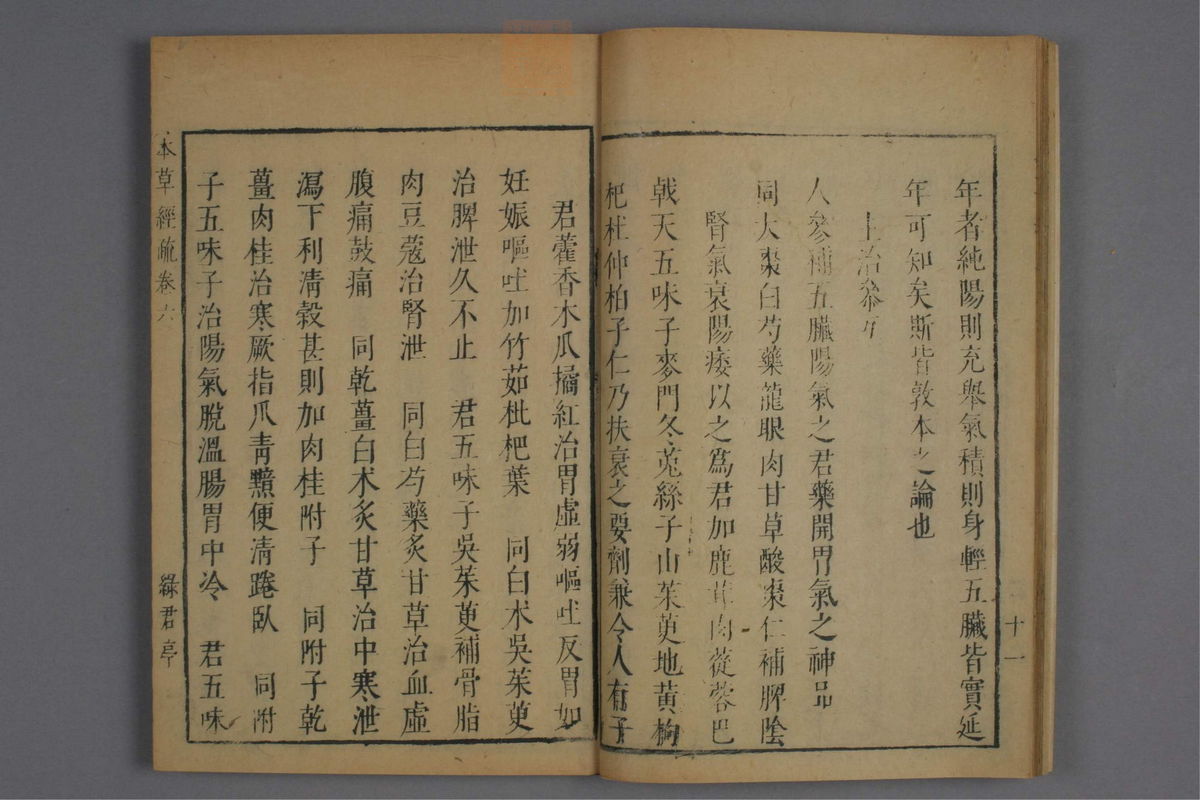 年者純陽則充舉氣積則身輕五臟皆實延
年可知矣斯皆敦本之論也
主治叅互
人參補五臟陽氣之君藥開胃氣之神品
同大棗白芍藥龍眼肉甘草酸棗仁補脾陰
腎氣衰陽痿以之爲君加鹿茸肉蓯蓉巴
戟天五味子麥門冬菟絲子山茱萸地黃枸
杞杜仲柏子仁乃扶衰之要劑兼令人有子
十一
君藿香木瓜橘紅治胃虛弱嘔吐反胃如
妊娠嘔吐加竹茹枇杷葉 同白术吳茱萸
治脾泄久不止 君五味子吳茱萸補骨脂
肉豆蔻治腎泄 同白芍藥炙甘草治血虛
腹痛鼓痛 同乾薑白术炙甘草治中寒泄
瀉下利清穀甚則加肉桂附子 同附子乾
薑肉桂治寒厥指爪靑黯便清踡臥 同附
子五味子治陽氣脫溫腸胃中冷 君五味
本草經疏卷六
綠君亭